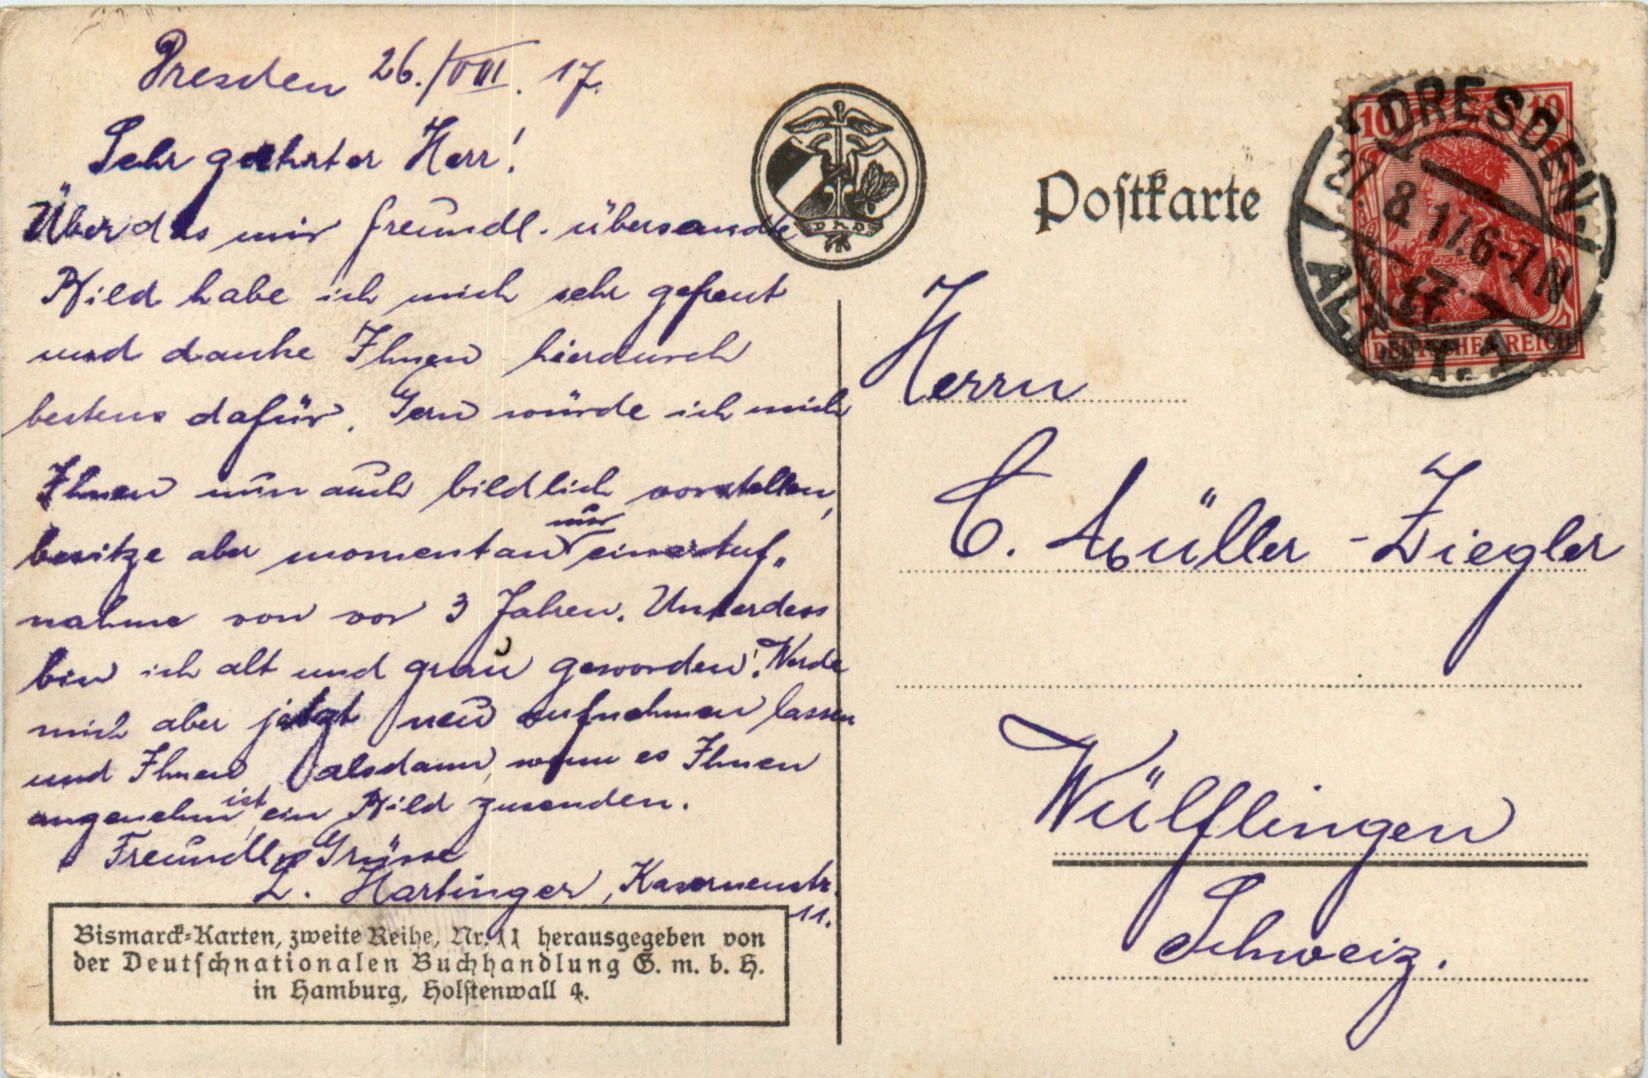 Dresden 26./VIII. 17.
Sehr geehrter Herr!
Über das mir freundl. übersandte
Bild habe ich mich sehr gefreut
und danke Ihnen hierdurch
bestens dafür. Gern würde ich mich
Ihnen nun auch bildlich vorstellen,
besitze aber momentan nur eine Auf„
nahme von vor 3 Jahren. Unterdess
bin ich alt und grau geworden! Werde
mich aber jetzt neu aufnehmen lassen
und Ihnen alsdann, wenn es Ihnen
angenehm ist, ein Bild zusenden.
Freundl. Grüsse
L. Hartinger, Kasernenstr.
11.
Bismarck-Karten, zweite Reihe, Nr. 11 herausgegeben von
der Deutschnationalen Buchhandlung G. m. b. H.
in Hamburg, Holstenwall 4.
DHV
Postkarte
10 10
DEUTSCHES REICH
DRESDEN-
ALTST. 1
27.8.17.6-7N
Herrn
C. Müller-Ziegler
Wülflingen
Schweiz.